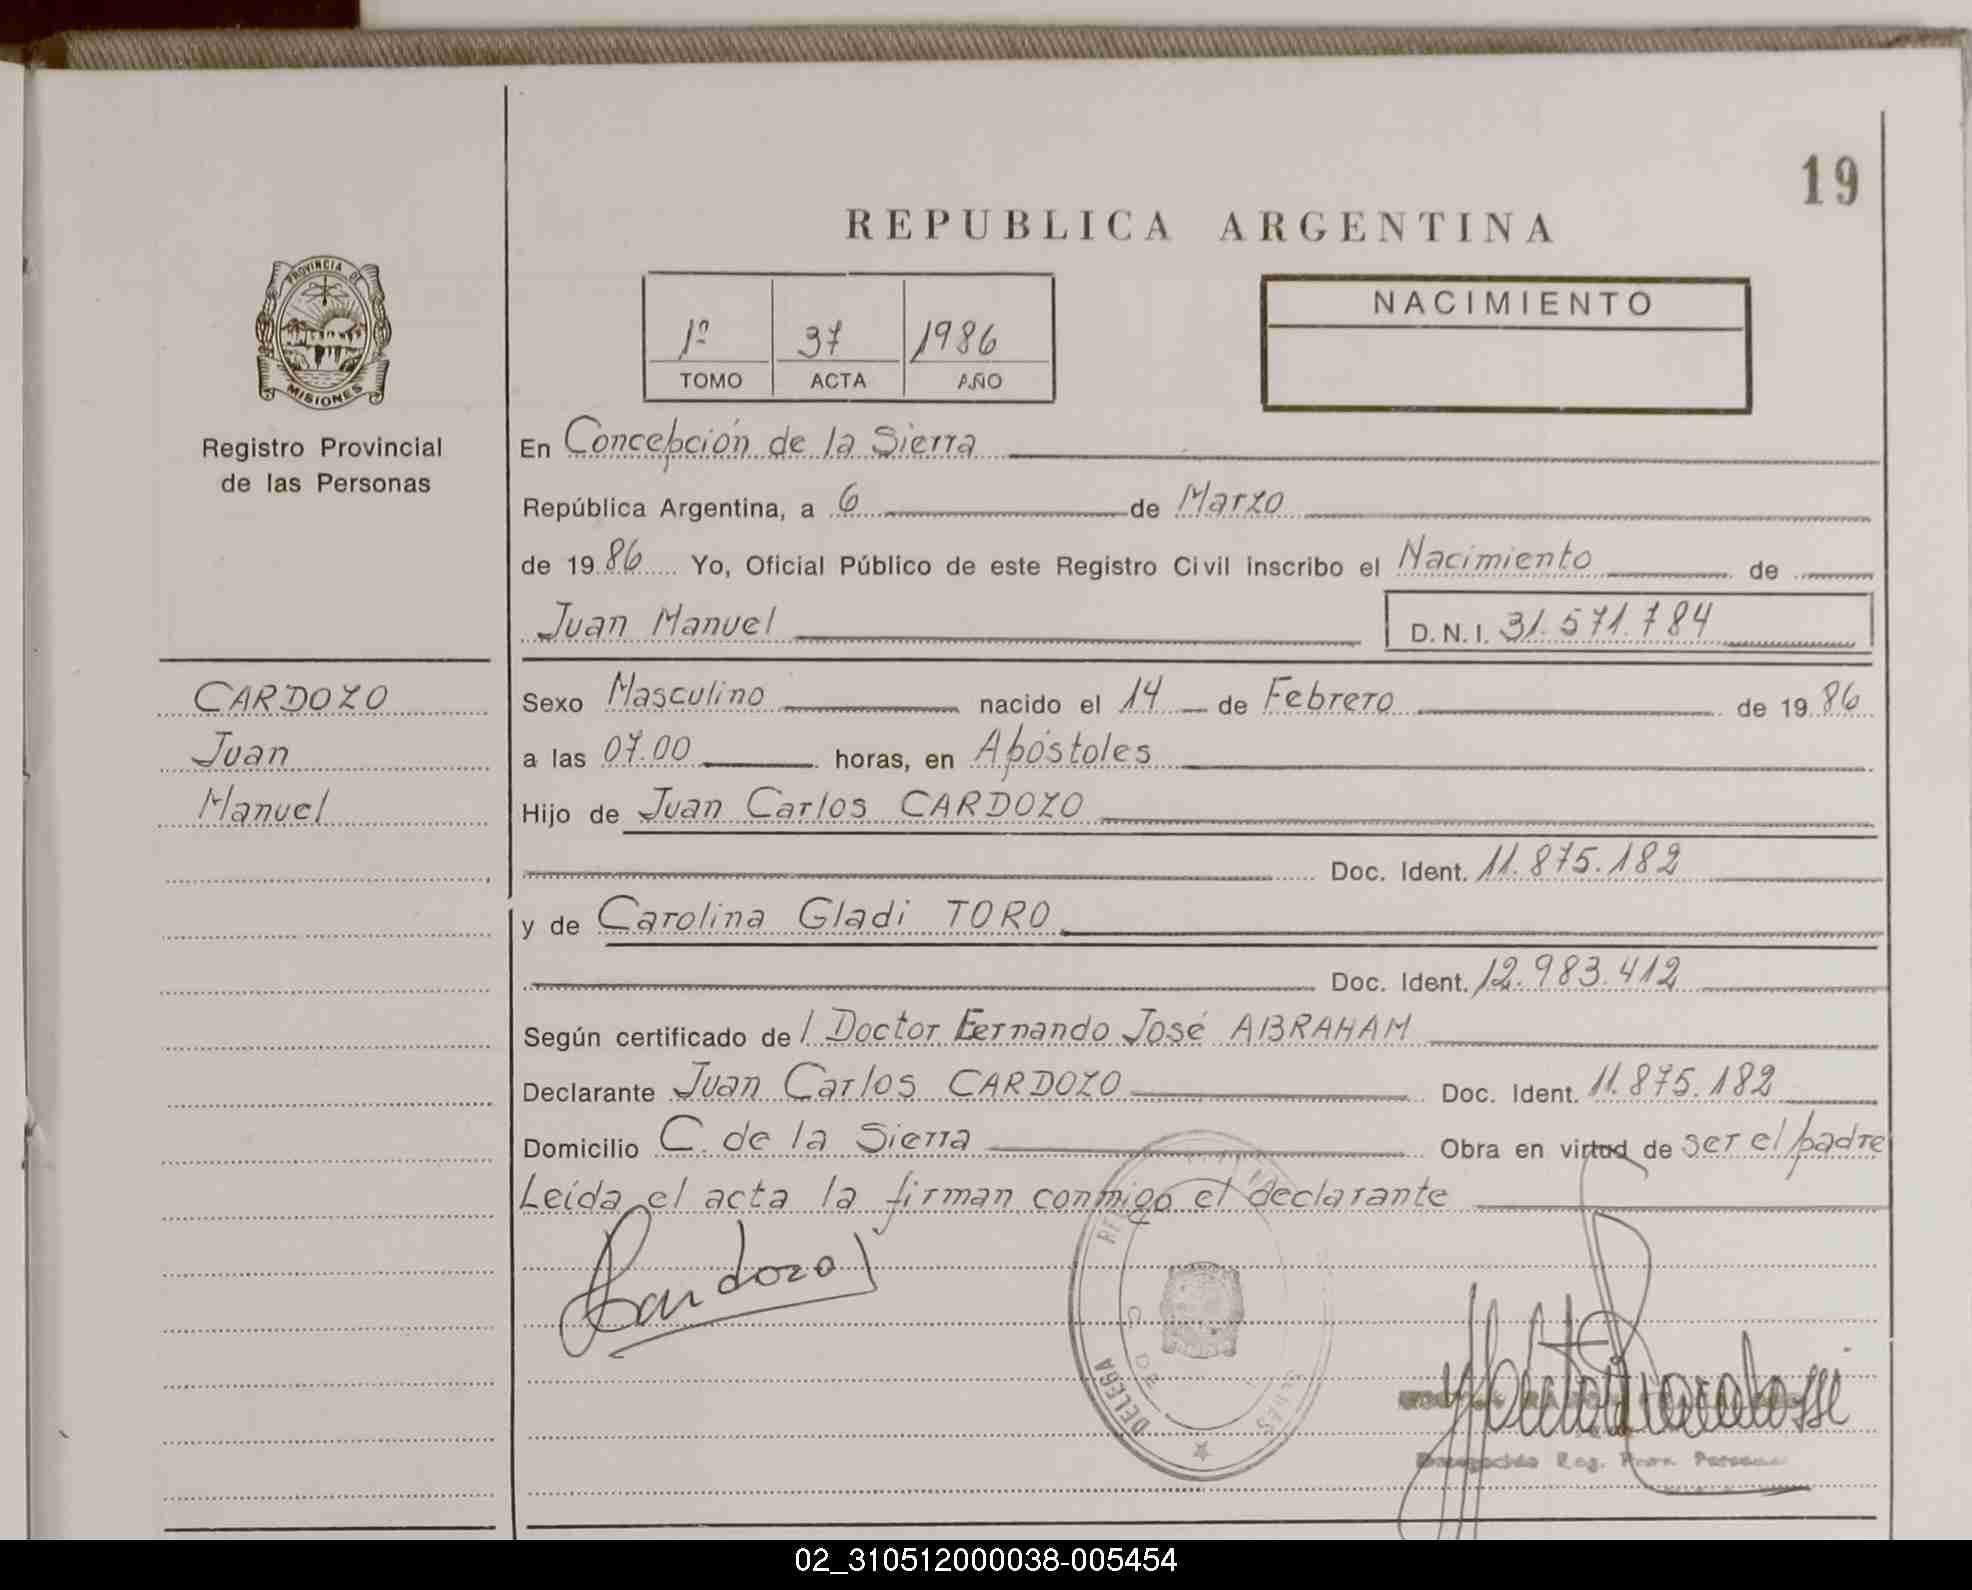 19
REPUBLICA ARGENTINA
PROVINCIA DE
MISIONES
Registro Provincial
de las Personas
1º 37 1986
TOMO ACTA AÑO
NACIMIENTO
En Concepción de la Sierra
República Argentina, a 6 de Marzo
de 1986 Yo, Oficial Público de este Registro Civil inscribo el Nacimiento de
Juan Manuel D.N.I. 31.571.784
CARDOZO
Juan
Manuel
Sexo Masculino nacido el 14 de Febrero de 1986
a las 07.00 horas, en Apóstoles
Hijo de Juan Carlos CARDOZO
Doc. Ident. 11.875.182
y de Carolina Gladi TORO
Doc. Ident. 12.983.412
Según certificado del Doctor Fernando José ABRAHAM
Declarante Juan Carlos CARDOZO Doc. Ident. 11.875.182
Domicilio C. de la Sierra Obra en virtud de ser el padre
Leída el acta la firman conmigo el declarante
Cardozo
DELEGA
C. DE
Reg. Prov. Personas
02_310512000038-005454